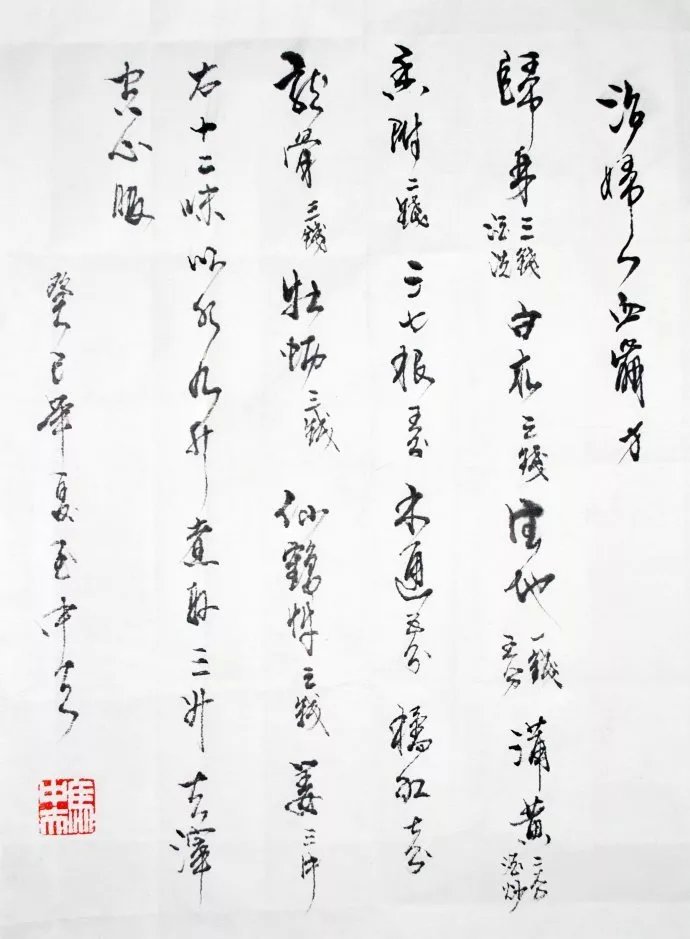 治婦人血崩方
歸身三錢酒洗 白朮三錢 生地一錢五分 蒲黄二分酒炒
香附二錢 三七根五分 木通五分 橘紅七分
龍骨三錢 牡蠣三錢 仙鶴草三錢 姜三片
右十二味以水九升煮取三升去滓
空心服
癸巳年夏至中志